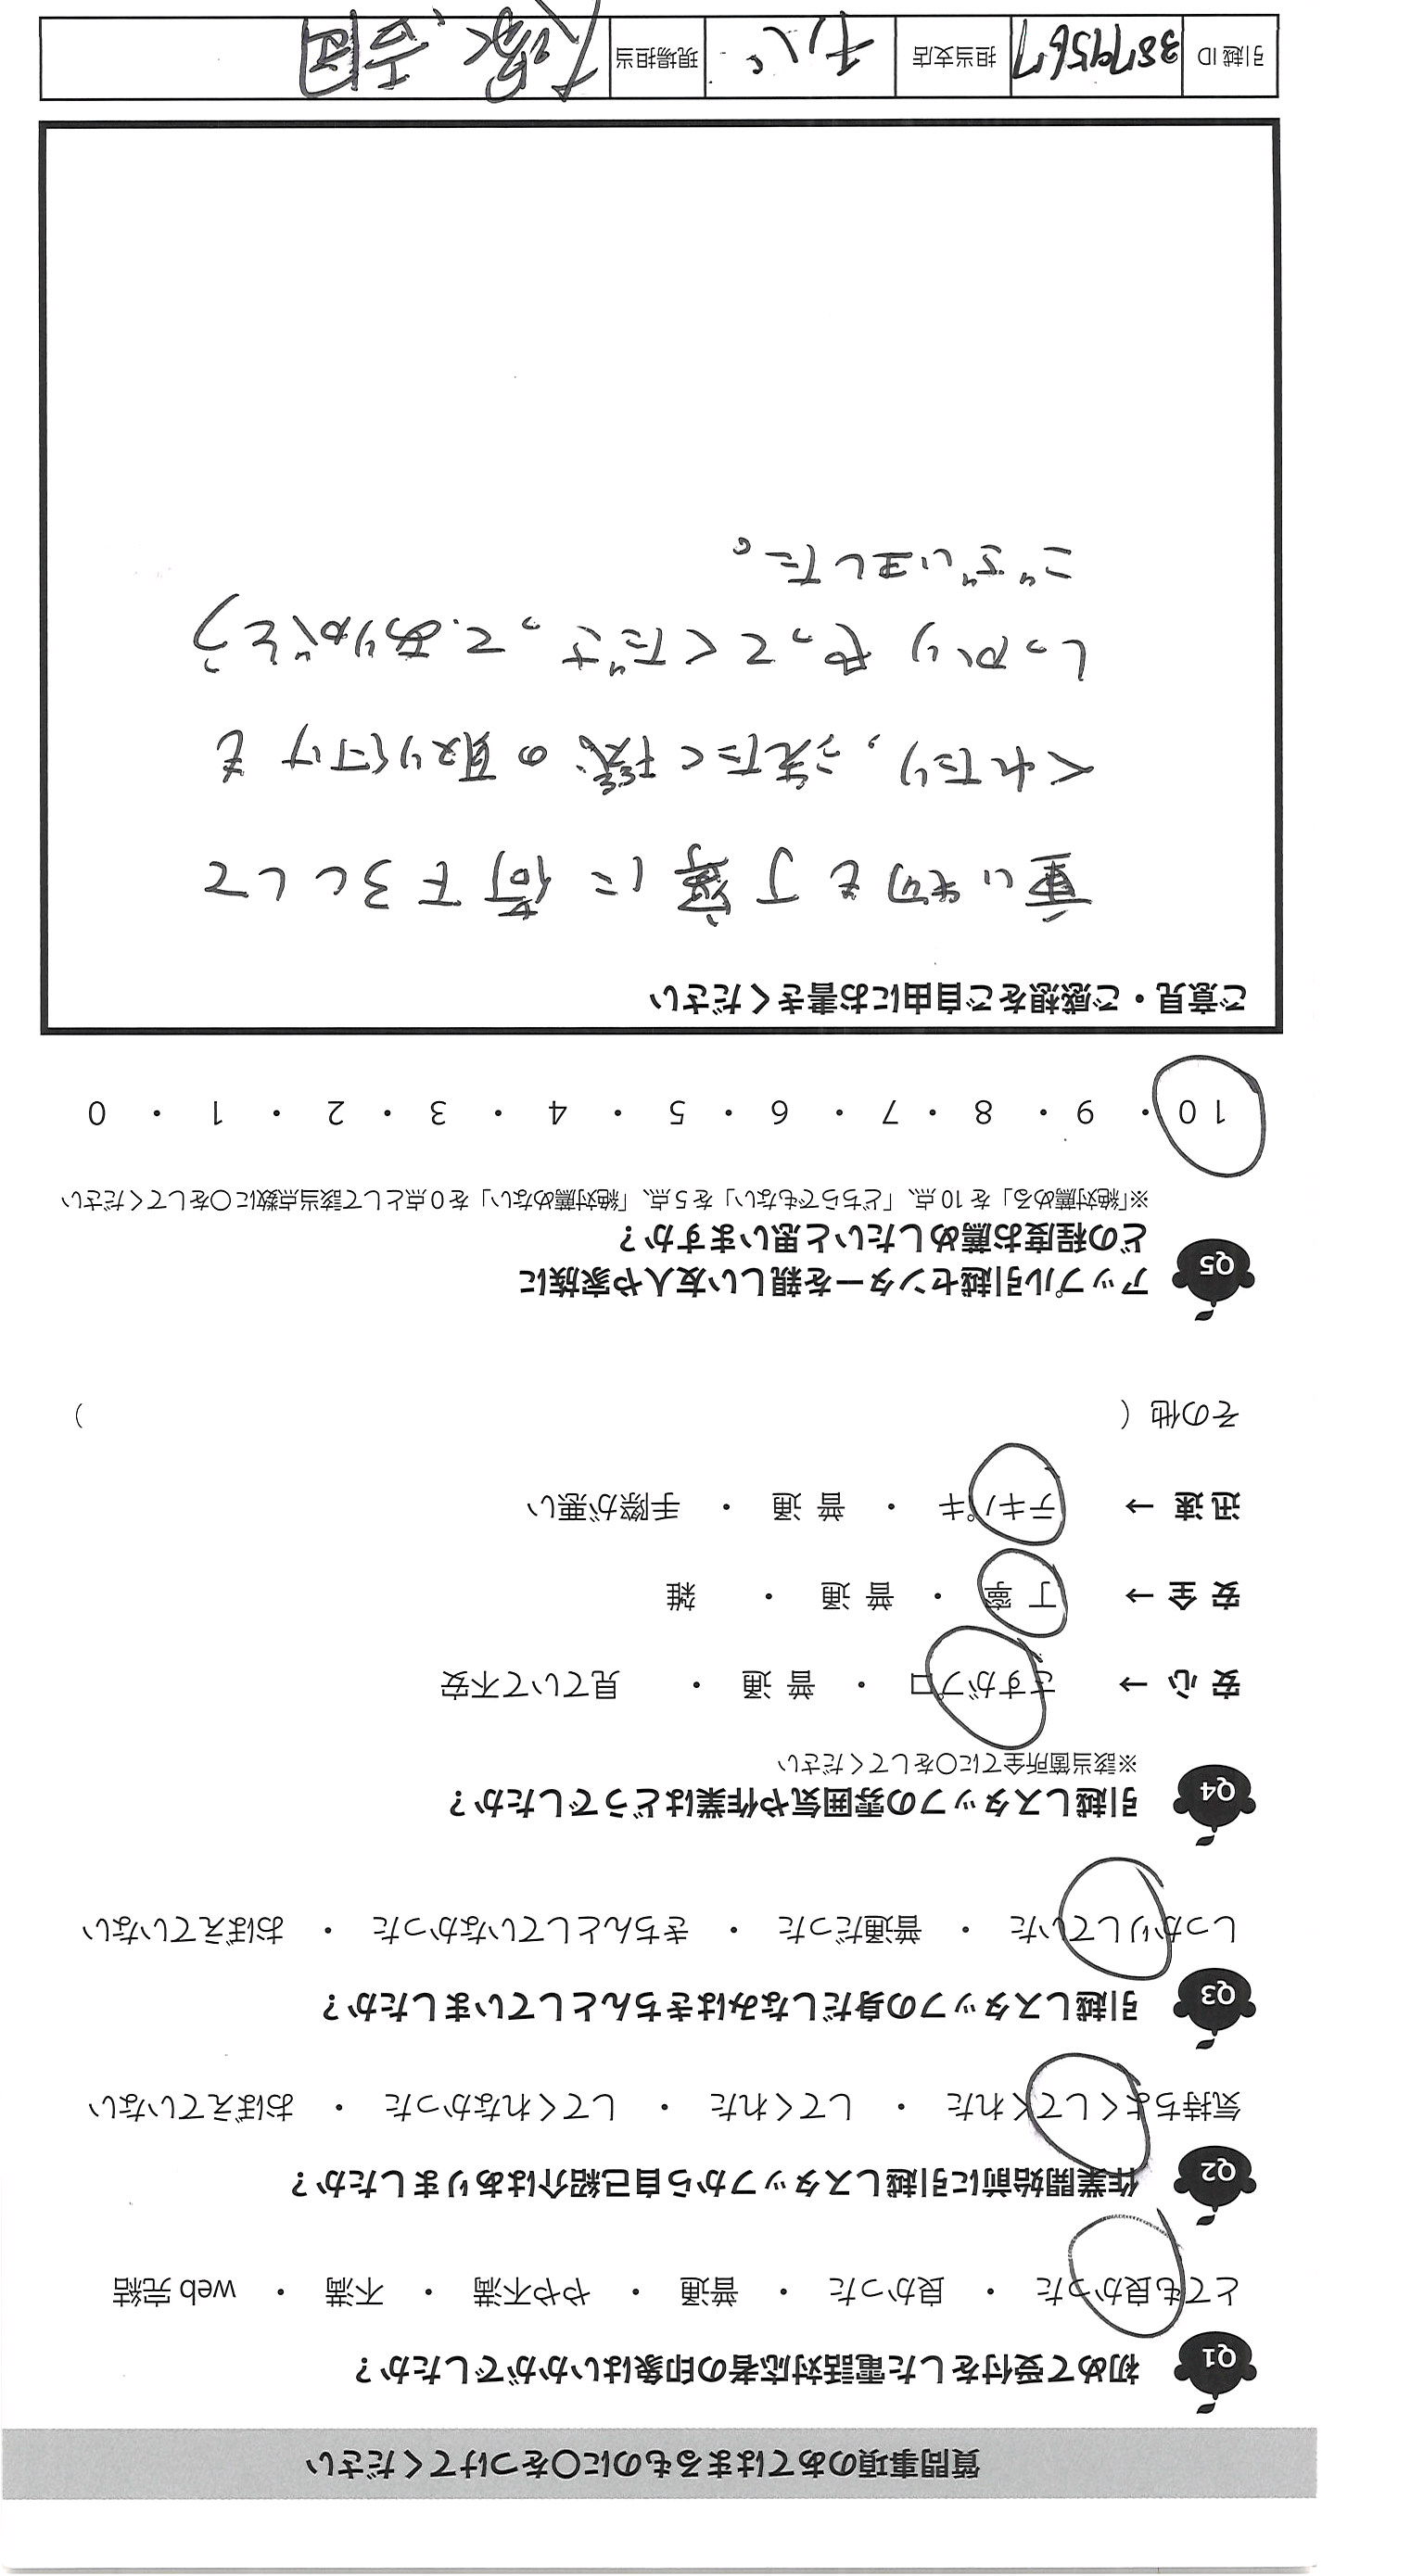 質問事項のあてはまるものに○をつけてください
Q1 初めて受付をした電話対応者の印象はいかがでしたか？
とても良かった ・ 良かった ・ 普通 ・ やや不満 ・ 不満 ・ web 完結
Q2 作業開始前に引越しスタッフから自己紹介はありましたか？
気持ちよくしてくれた ・ してくれた ・ してくれなかった ・ おぼえていない
Q3 引越しスタッフの身だしなみはきちんとしていましたか？
しっかりしていた ・ 普通だった ・ きちんとしていなかった ・ おぼえていない
Q4 引越しスタッフの雰囲気や作業はどうでしたか？
※該当箇所全てに○をしてください
安 心 → さすがプロ ・ 普 通 ・ 見ていて不安
安 全 → 丁 寧 ・ 普 通 ・ 雑
迅 速 → テキパキ ・ 普 通 ・ 手際が悪い
その他（ ）
Q5 アップル引越センターを親しい友人や家族に
どの程度お薦めしたいと思いますか？
※「絶対薦める」を 10 点、「どちらでもない」を 5 点、「絶対薦めない」を 0 点として該当点数に○をしてください
10 ・ 9 ・ 8 ・ 7 ・ 6 ・ 5 ・ 4 ・ 3 ・ 2 ・ 1 ・ 0
ご意見・ご感想をご自由にお書きください
重い物も丁寧に荷下ろしして
くれたり、洗たく機の取り付けも
しっかりやってくださって、ありがとう
ございました。
引越 ID 38794567 担当支店 チバ 現場担当 大塚、吉田